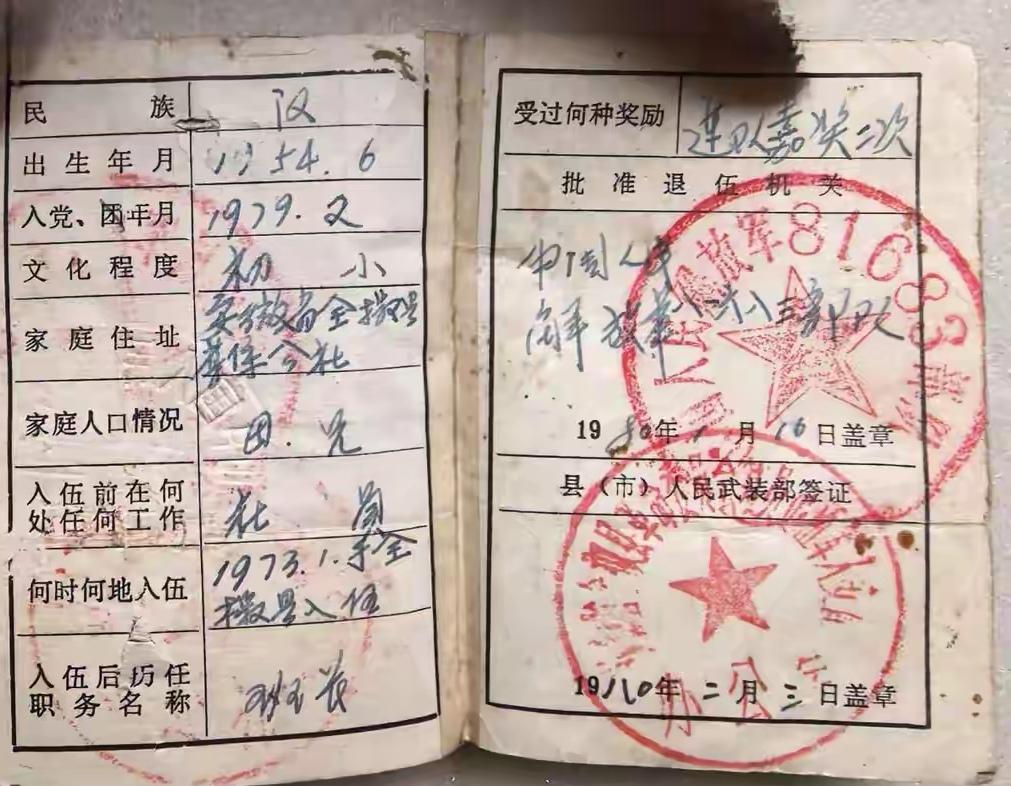 民族 汉
出生年月 1954.6
入党、团年月 1979.2
文化程度 初小
家庭住址 安徽省全椒县
公社
家庭人口情况 母.兄
入伍前在何
处任何工作 社员
何时何地入伍 1973.1.于全
椒县入伍
入伍后历任
职务名称 班长
受过何种奖励 连队嘉奖二次
批准退伍机关
中国人民
解放军八一六八三部队
1980年1月16日盖章
人民解放军81683部队
县（市）人民武装部签证
1980年二月三日盖章
办公